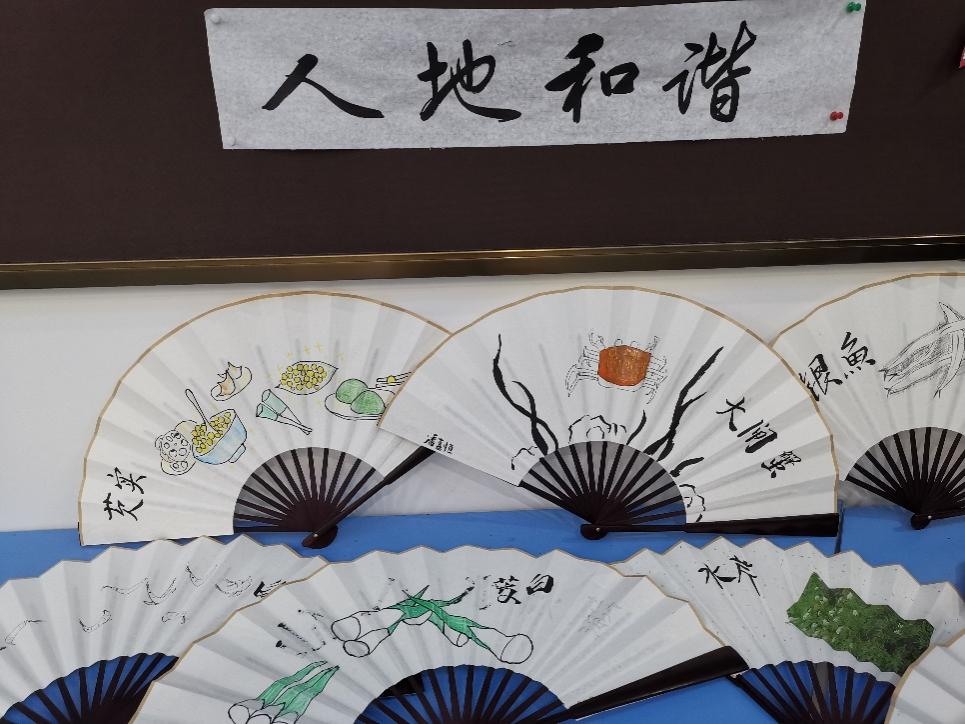 人地和谐
芡实
大闸蟹
银魚
茭白
水芹